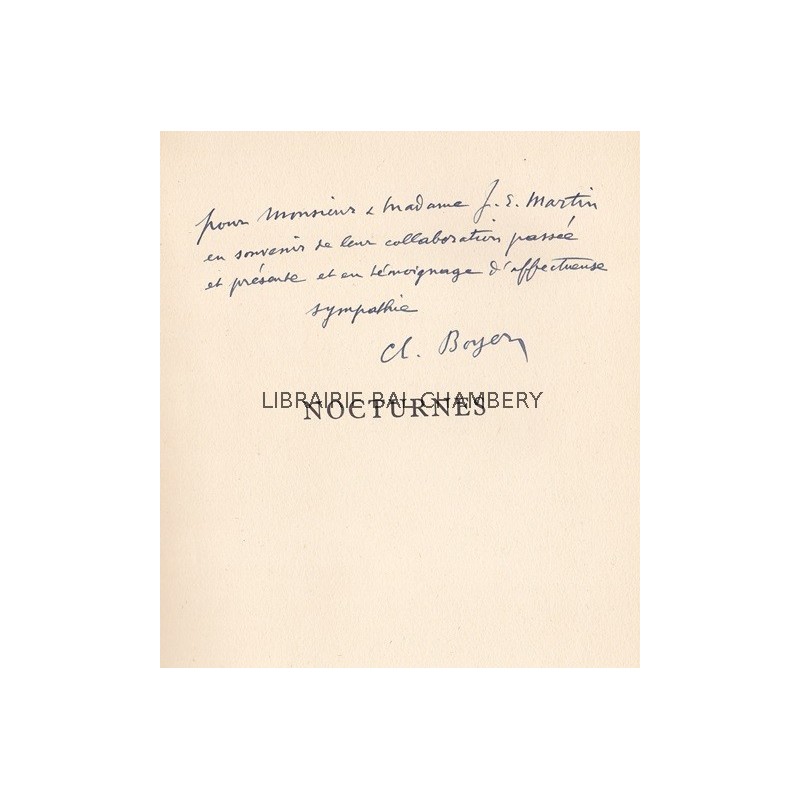 pour Monsieur & Madame J. E. Martin
en souvenir de leur collaboration passée
et présente et en témoignage d'affectueuse
sympathie
Ch. Boyer
LIBRAIRIE BAL CHAMBERY
NOCTURNES